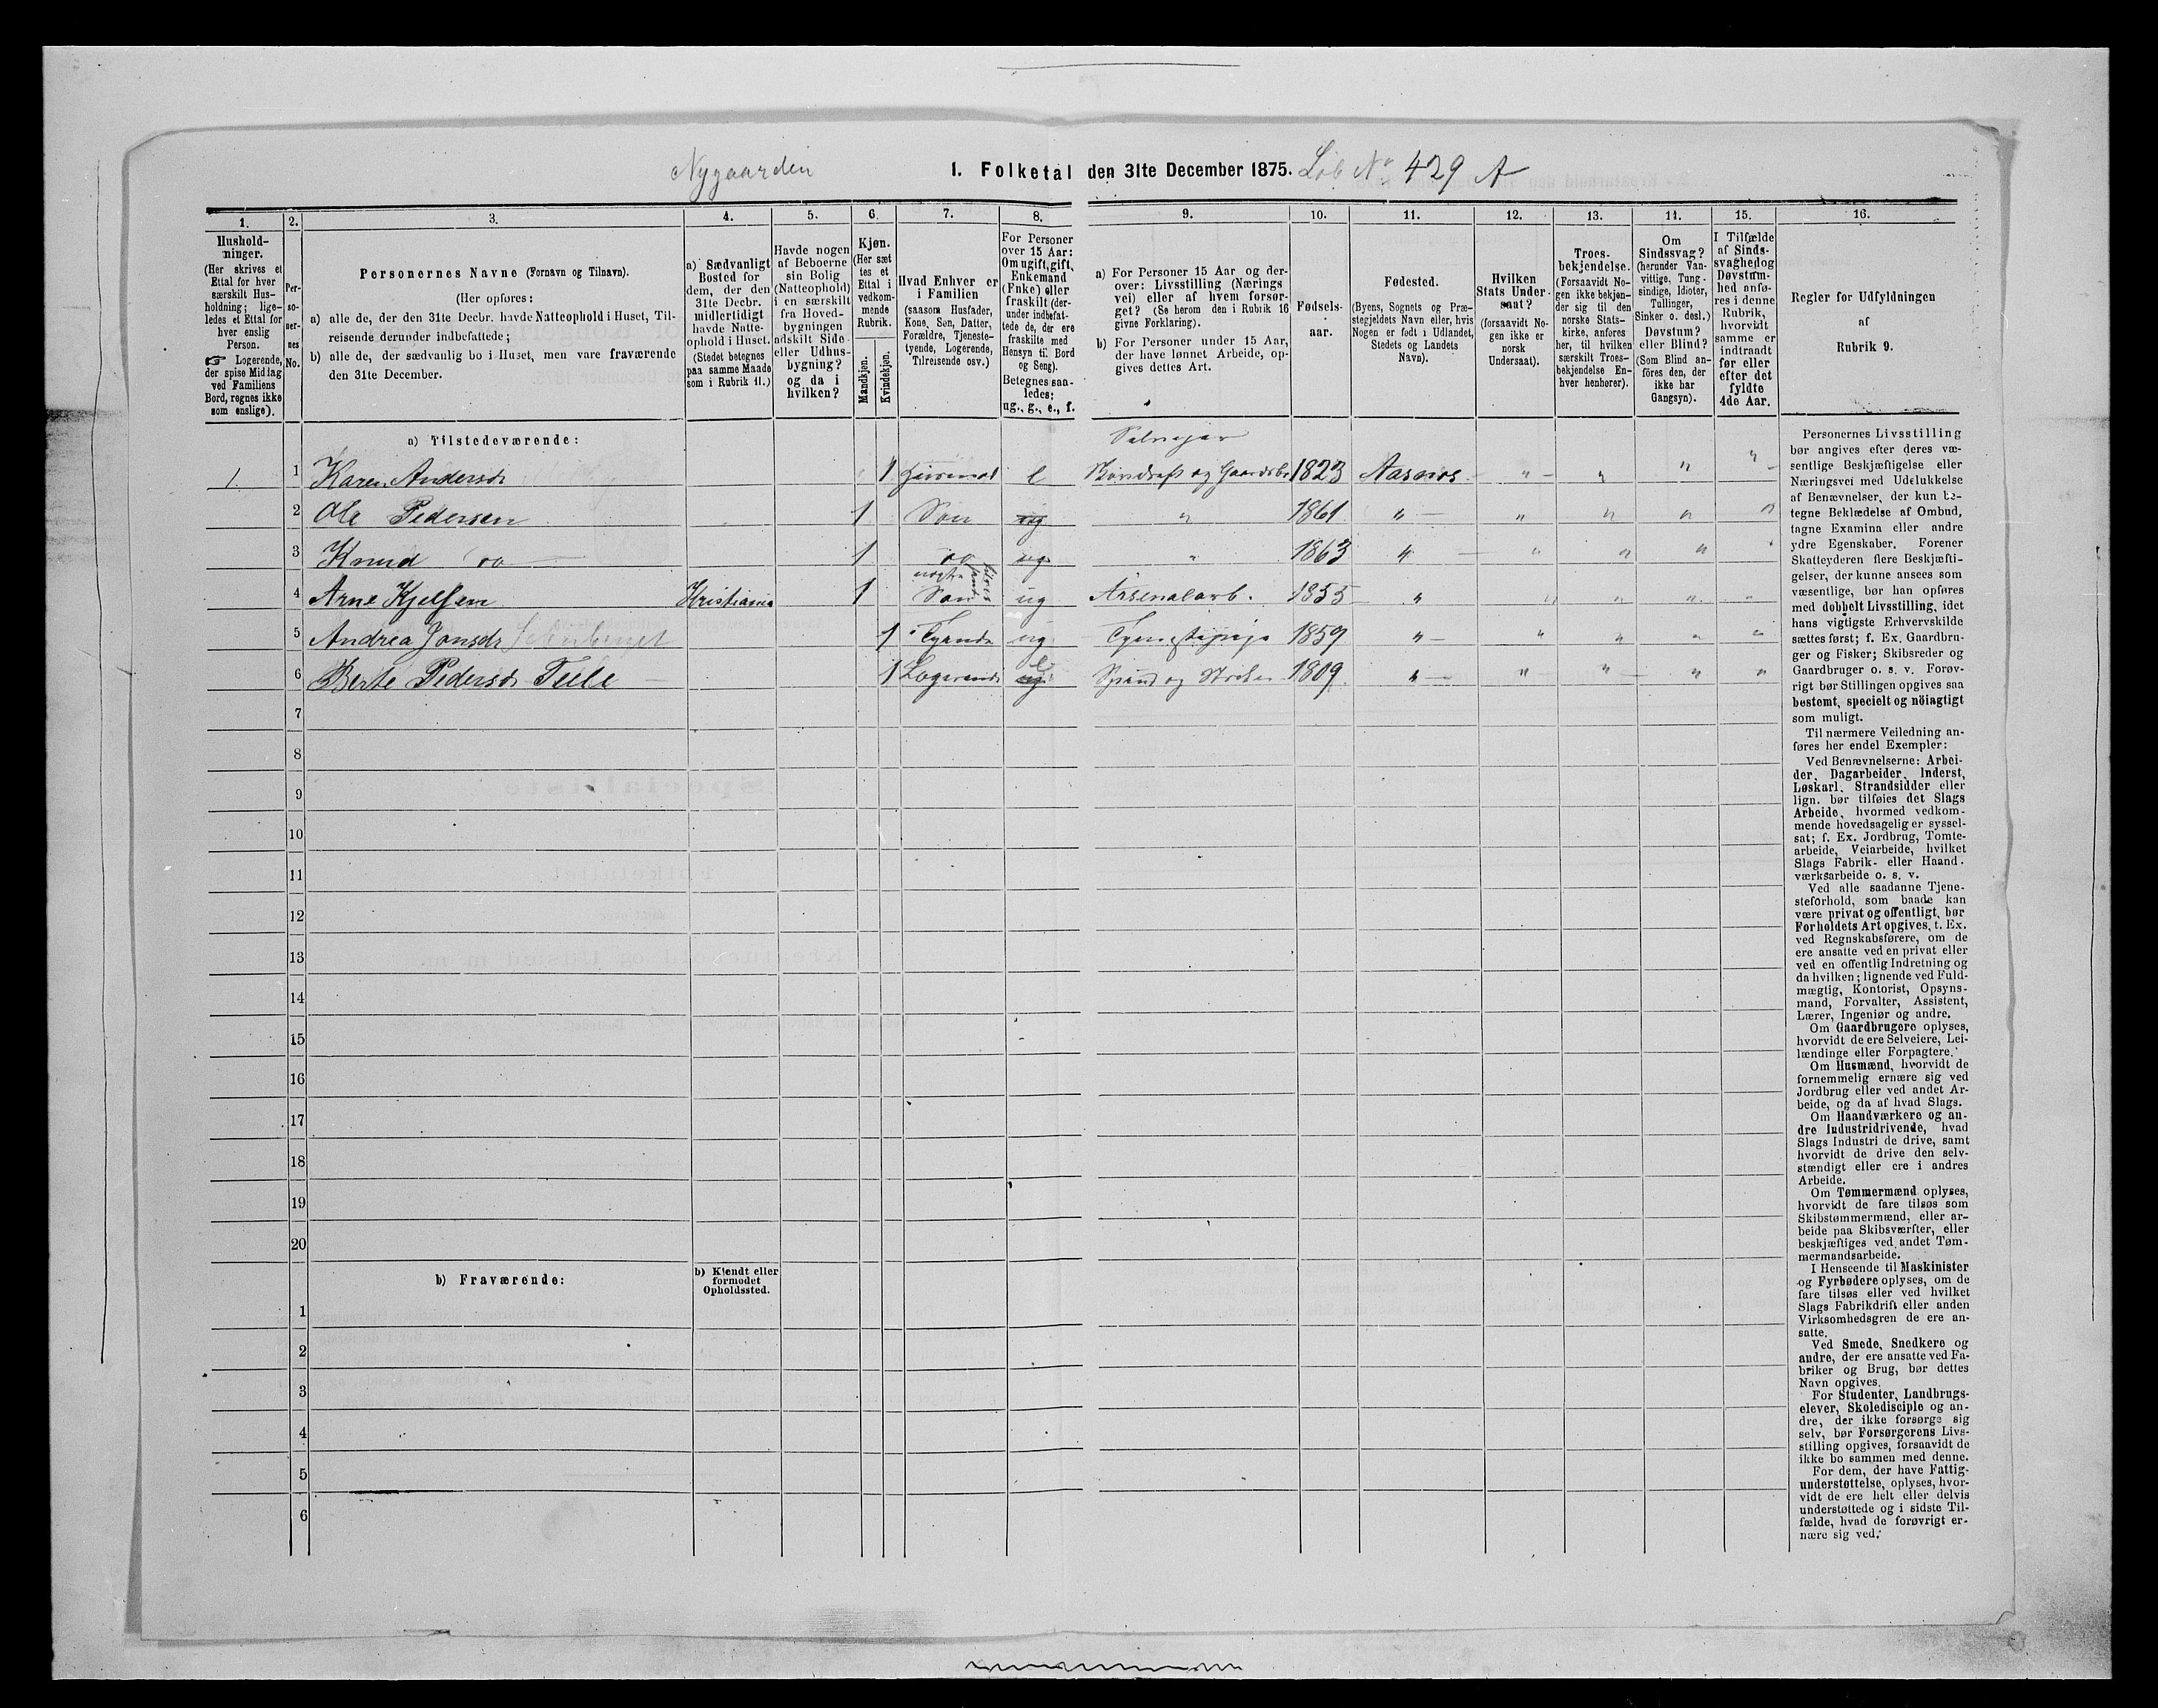 Nygaarden
1. Folketal den 31te December 1875.
Löb No 429 A
1. 2. 3. 4. 5. 6. 7. 8. 9. 10. 11. 12. 13. 14. 15. 16.
Hushold-
ninger.
(Her skrives et
Ettal for hver
særskilt Hus-
holdning; lige-
ledes et Ettal for
hver enslig
Person.
☞ Logerende,
der spise Middag
ved Familiens
Bord, regnes ikke
som enslige).
Per-
so-
ner-
nes
No.
Personernes Navne (Fornavn og Tilnavn).
(Her opføres:
a) alle de, der den 31te Decbr. havde Natteophold i Huset, Til-
reisende derunder indbefattede;
b) alle de, der sædvanlig bo i Huset, men vare fraværende
den 31te December.
a) Sædvanligt
Bosted for
dem, der den
31te Decbr.
midlertidigt
havde Natte-
ophold i Huset.
(Stedet betegnes
paa samme Maade
som i Rubrik 11.)
Havde nogen
af Beboerne
sin Bolig
(Natteophold)
i en særskilt
fra Hoved-
bygningen
adskilt Side-
eller Udhus-
bygning?
og da i
hvilken?
Kjøn.
(Her sæt
tes et
Ettal i
vedkom-
mende
Rubrik.
Mandkjøn.
Kvindekjøn.
Hvad Enhver er
i Familien
(saasom Husfader,
Kone, Søn, Datter,
Forældre, Tjeneste-
tyende, Logerende,
Tilreisende osv.)
For Personer
over 15 Aar:
Om ugift, gift,
Enkemand
(Enke) eller
fraskilt (der-
under indbefat-
tede de, der ere
fraskilte med
Hensyn til Bord
og Seng).
Betegnes saa-
ledes:
ug., g., e., f.
a) For Personer 15 Aar og der-
over: Livsstilling (Nærings
vei) eller af hvem forsør-
get? (Se herom den i Rubrik 16
givne Forklaring).
b) For Personer under 15 Aar,
der have lønnet Arbeide, op-
gives dettes Art.
Fødsels-
aar.
Fødested.
(Byens, Sognets og Præ-
stegjeldets Navn eller, hvis
Nogen er født i Udlandet,
Stedets og Landets
Navn).
Hvilken
Stats Under-
saat?
(forsaavidt No-
gen ikke er
norsk
Undersaat).
Troes-
bekjendelse.
(Forsaavidt No-
gen ikke bekjen-
der sig til den
norske Stats-
kirke, anføres
her, til hvilken
særskilt Troes-
bekjendelse En-
hver henhører).
Om
Sindssvag?
(herunder Van-
vittige, Tung-
sindige, Idioter,
Tullinger,
Sinker o. desl.)
Døvstum?
eller Blind?
(Som Blind an-
föres den, der
ikke har
Gangsyn).
I Tilfælde
af Sinds-
svaghed og
Døvstum-
hed anfø-
res i denne
Rubrik,
hvorvidt
samme er
indtraadt
før eller
efter det
fyldte
4de Aar.
Regler for Udfyldningen
af
Rubrik 9.
a) Tilstedeværende:
1. 1 Karen Andersdr 1 e 1823 Aasnes " " " "
2 Ole Pedersen 1 Søn ug " 1861 " " " " "
3 Knud do 1 do ug " 1863 " " " "
4 Arne Kjelsen Kristiania 1 Søn ug Arsenalarb. 1855 " " " " "
5 Andrea Jonsdr 1 Tyende ug Tjenestepige 1859 " " " " "
6 Berte Pedersdr 1 Logerende ug e 1809 " " " " "
7
8
9
10
11
12
13
14
15
16
17
18
19
20
b) Fraværende:
b) Kjendt eller
formodet
Opholdssted.
1
2
3
4
5
6
Personernes Livsstilling
bør angives efter deres væ-
sentlige Beskjæftigelse eller
Næringsvei med Udelukkelse
af Benævnelser, der kun be-
tegne Beklædelse af Ombud,
tagne Examina eller andre
ydre Egenskaber. Forener
Skatteyderen flere Beskjæfti-
gelser, der kunne ansees som
væsentlige, bør han opføres
med dobbelt Livsstilling, idet
hans vigtigste Erhvervskilde
sættes først; f. Ex. Gaardbru-
ger og Fisker; Skibsreder og
Gaardbruger o. s. v. Forøv-
rigt bør Stillingen opgives saa
bestemt, specielt og nöiagtigt
som muligt.
Til nærmere Veiledning an-
føres her endel Exempler:
Ved Benævnelserne: Arbei-
der, Dagarbeider, Inderst,
Løskarl, Strandsidder eller
lign. bør tilføies det Slags
Arbeide, hvormed vedkom-
mende hovedsagelig er syssel-
sat; f. Ex. Jordbrug, Tomte-
arbeide, Veiarbeide, hvilket
Slags Fabrik- eller Haand-
værksarbeide o. s. v.
Ved alle saadanne Tjene-
steforhold, som baade kan
være privat og offentligt, bør
Forholdets Art opgives, t. Ex.
ved Regnskabsførere, om de
ere ansatte ved en privat eller
ved en offentlig Indretning og
da hvilken; lignende ved Fuld-
mægtig, Kontorist, Opsyns-
mand, Forvalter, Assistent,
Lærer, Ingeniør og andre.
Om Gaardbrugere oplyses,
hvorvidt de ere Selveiere, Lei-
lændinge eller Forpagtere.
Om Husmænd, hvorvidt de
fornemmelig ernære sig ved
Jordbrug eller ved andet Ar-
beide, og da af hvad Slags.
Om Haandværkere og an-
dre Industridrivende, hvad
Slags Industri de drive, samt
hvorvidt de drive den selv-
stændigt eller ere i andres
Arbeide.
Om Tømmermænd oplyses,
hvorvidt de fare tilsøs som
Skibstømmermænd, eller ar-
beide paa Skibsværfter, eller
beskjæftiges ved andet Tøm-
mermandsarbeide.
I Henseende til Maskinister
og Fyrbødere oplyses, om de
fare tilsøs eller ved hvilket
Slags Fabrikdrift eller anden
Virksomhedsgren de ere an-
satte.
Ved Smede, Snedkere og
andre, der ere ansatte ved Fa-
briker og Brug, bør dettes
Navn opgives.
For Studenter, Landbrugs-
elever, Skoledisciple og an-
dre, der ikke forsørge sig
selv, bør Forsørgerens Livs-
stilling opgives, forsaavidt de
ikke bo sammen med denne.
For dem, der have Fattig-
understøttelse, oplyses, hvor-
vidt de ere helt eller delvis
understøttede og i sidste Til-
fælde, hvad de forøvrigt er-
nære sig ved.